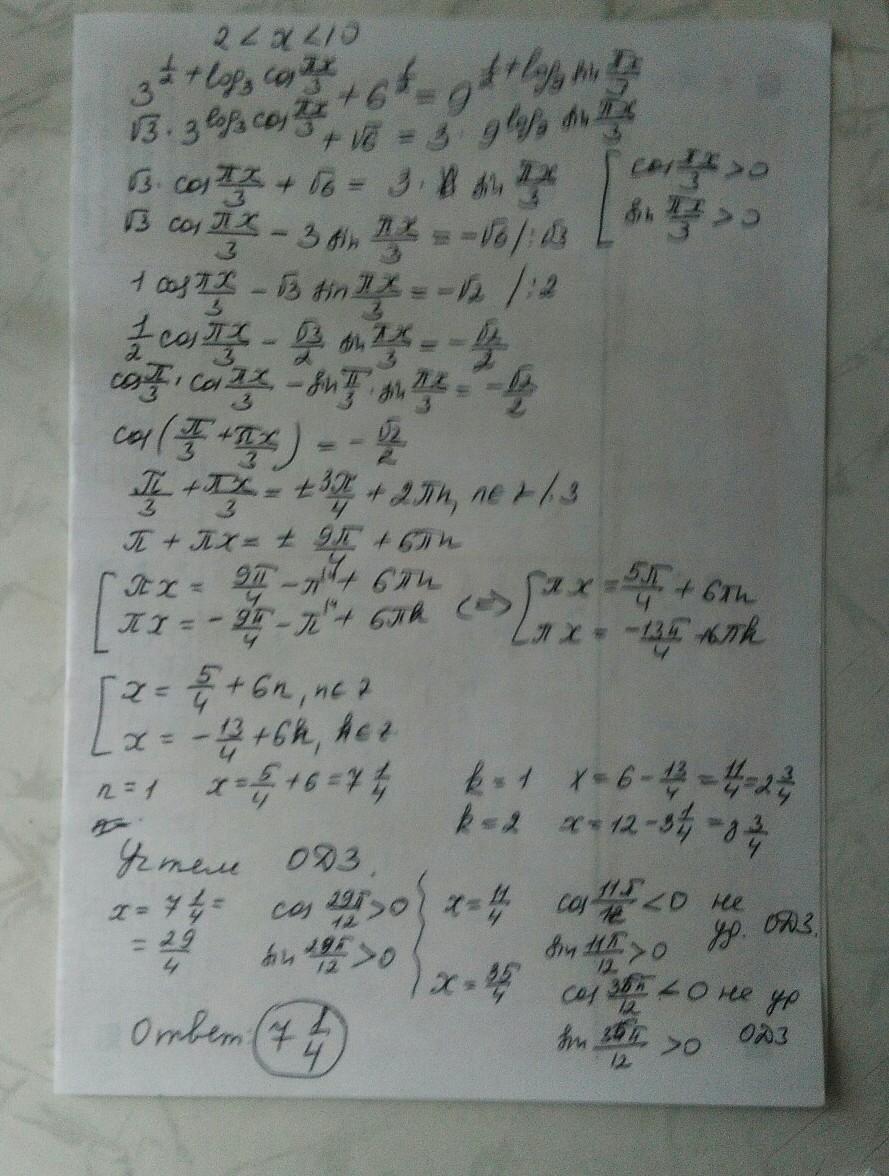 2 < x < 10
3^{1/2 + log₃ cos πx/3} + 6^{1/2} = 9^{1/2 + log₉ sin πx/3}
√3 · 3^{log₃ cos πx/3} + √6 = 3 · 9^{log₉ sin πx/3}
√3 · cos πx/3 + √6 = 3 · sin πx/3 [ cos πx/3 > 0
sin πx/3 > 0
√3 cos πx/3 − 3 sin πx/3 = −√6 /:√3
1 cos πx/3 − √3 sin πx/3 = −√2 /:2
1/2 cos πx/3 − √3/2 sin πx/3 = −√2/2
cos π/3 · cos πx/3 − sin π/3 · sin πx/3 = −√2/2
cos(π/3 + πx/3) = −√2/2
π/3 + πx/3 = ± 3π/4 + 2πn, n∈z /·3
π + πx = ± 9π/4 + 6πn
[ πx = 9π/4 − π^{\4} + 6πn (⇔) [ πx = 5π/4 + 6πn
πx = −9π/4 − π^{\4} + 6πk πx = −13π/4 + 6πk
[ x = 5/4 + 6n, n∈z
x = −13/4 + 6k, k∈z
n = 1 x = 5/4 + 6 = 7 1/4 k = 1 x = 6 − 13/4 = 11/4 = 2 3/4
k = 2 x = 12 − 3 1/4 = 8 3/4
Учтем ОДЗ.
x = 7 1/4 = cos 29π/12 > 0 { x = 11/4 cos 11π/12 < 0 не
= 29/4 sin 29π/12 > 0 sin 11π/12 > 0 ур. ОДЗ.
x = 35/4 cos 35π/12 < 0 не ур
Ответ: 7 1/4 sin 35π/12 > 0 ОДЗ